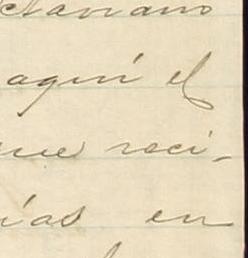 ctaviano
aquí el
ue reci-
ías en